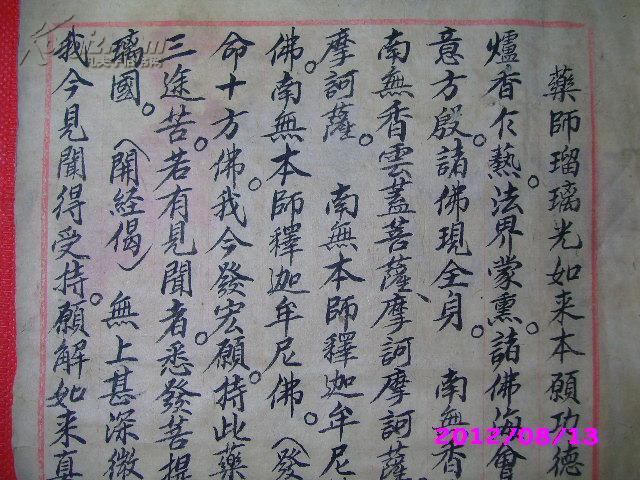 藥師瑠璃光如来本願功德
爐香乍熱。法界蒙熏。諸佛海會
意方殷。諸佛現全身。　南無香
南無香雲蓋菩薩、摩訶摩訶薩
摩訶薩。　南無本師釋迦牟尼
佛。南無本師釋迦牟尼佛。（發
命十方佛。我今發宏願。持此藥
三途苦。若有見聞者。悉發菩提
璃國。（開経偈）　無上甚深微
我今見聞得受持。願解如来真
2012/08/13